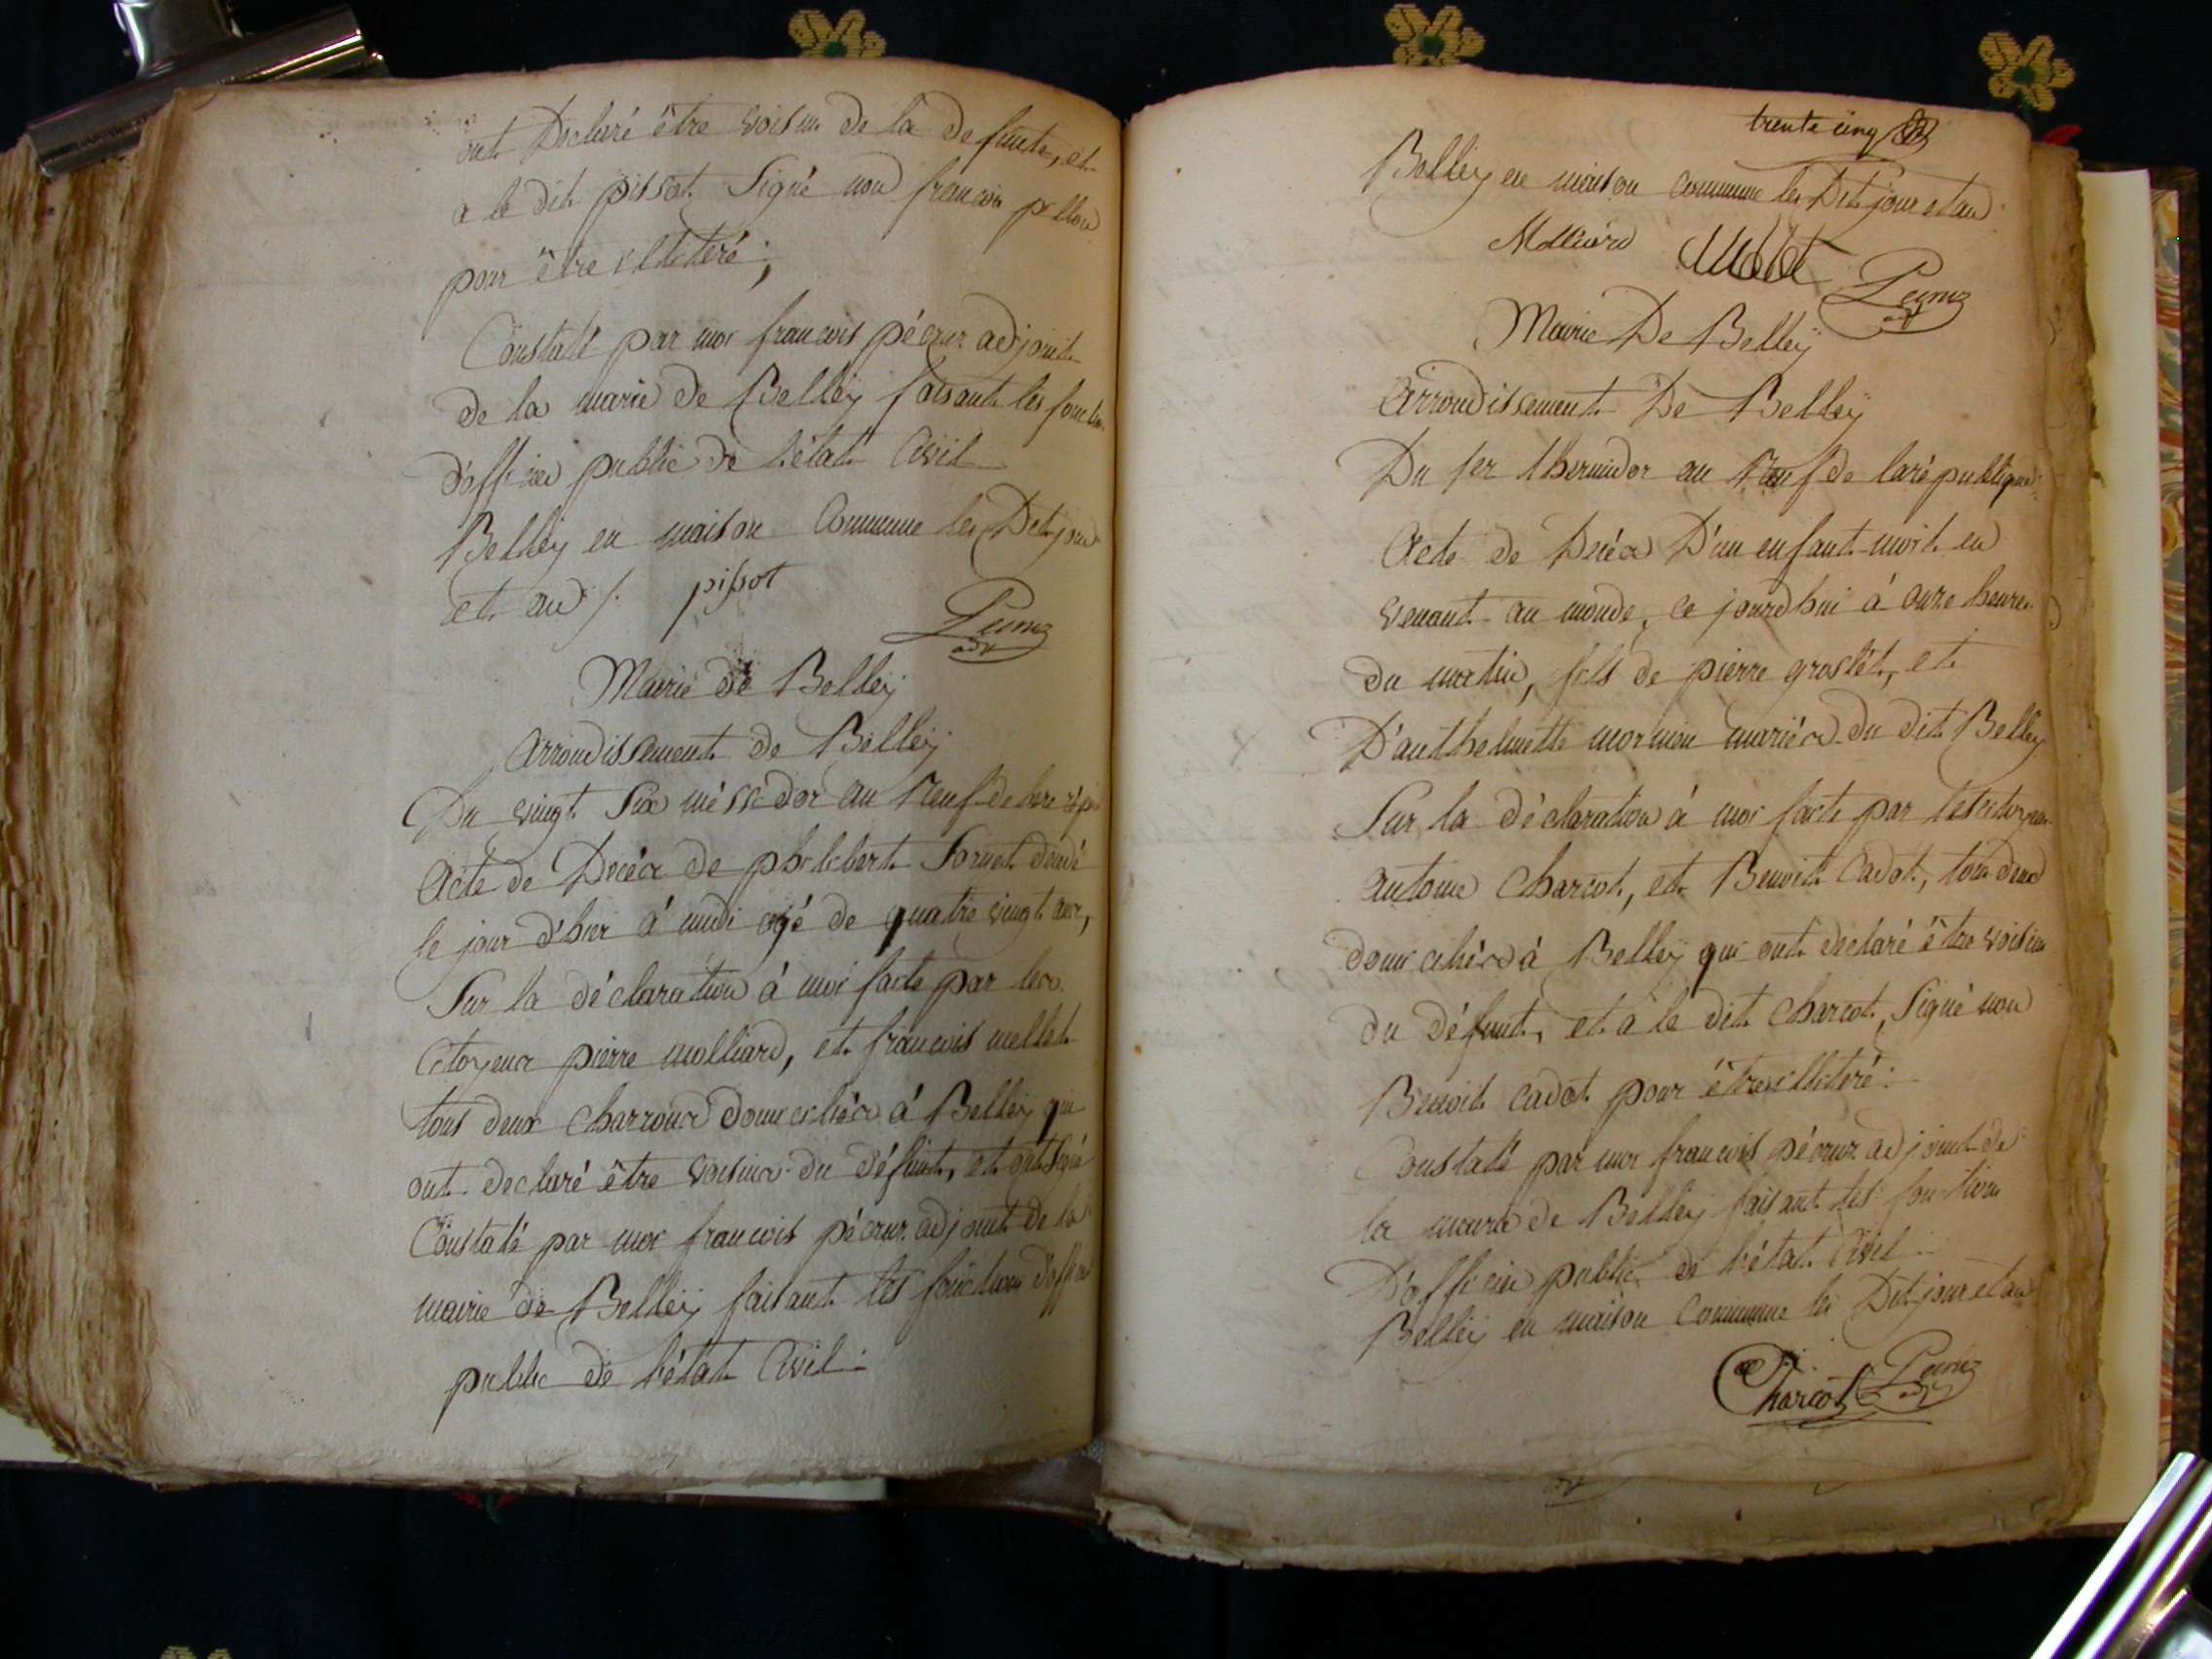 ont Declaré être voisin de la defunte, et
a le dit pissot Signé non francois pillou
pour être illiteré ;
Constaté par moi francois pécruz adjoint
de la marie de Belleÿ faisant les fonction
d'officier public de l'état Civil
Belleÿ en maison Commune les Dit jour
et an /. pissot
adt
Mairie de Belleÿ
Arrondissement de Belleÿ
Du vingt Six méssidor an Neuf de lere rép
Acte de Décés de philibert Sornet décédé
le jour d'hier á midi agé de quatre vingt ans,
Sur la déclaration á moi faite par les
Citoyens pierre molliard, et francois mellet
tous deux charrons domiciliés á Belleÿ qui
ont declaré être voisins du défunt, et ont signé
Constaté par moi francois pécruz adjoint de la
mairie de Belleÿ faisant les fonctions d'officier
public de l'état Civil .
trente cinq
Belleÿ en maison commune les Dit jour et an
Molliard Mellet
Mairie De Belleÿ
Arrondissement De Belleÿ
Du 1er thermidor an Neuf de la république
Acte de Décés D'un enfant mort en
venant au monde, ce jourdhui á onze heures
du matin, fils de pierre groslet, et
D'anthelmette mormieu mariés du dit Belleÿ
Sur la déclaration á moi faite par les citoyens
antoine Charcot, et Benoit Cadot, tous deux
domiciliés á Belleÿ qui ont declaré être voisins
du défunt, et á le dit Charcot, Signé non
Benoit cadot pour être illiteré .
Constaté par moi francois pécruz adjoint de
la mairie de Belleÿ faisant les fonctions
D'officier public de l'état Civil
Belleÿ en maison Commune les Dit jour et an
Charcot